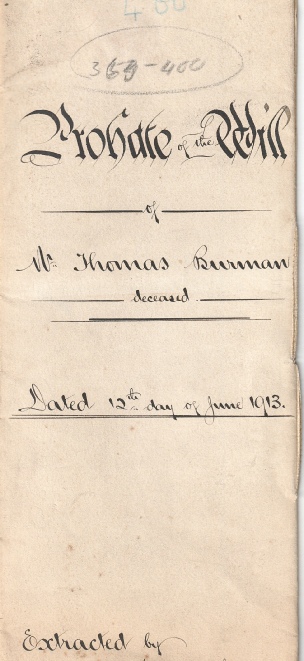 400
359-400
Probate of the Will
of
Mr. Thomas Burman
deceased.
Dated 12th day of June 1913.
Extracted by